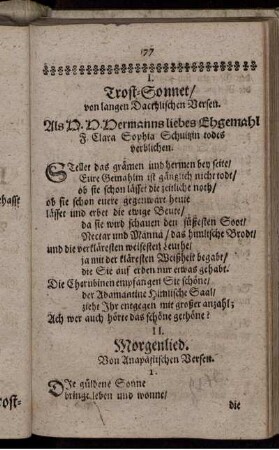 177
I.
Trost-Sonnet/
von langen Dactylischen Versen.
Als D. D. Hermanns liebes Ehgemahl
F. Clara Sophia Schultzin todes
verblichen.
Stellet das grämen und hermen bey seite/
Eure Gemahlin ist gäntzlich nicht todt/
ob sie schon lässet die zeitliche noth/
ob sie schon eurer gegenwart heute
lässet und erbet die ewige Beute/
da sie wird schauen den süßesten Gott/
Nectar und Manna/ das himlische Brodt/
und die verklåresten weisesten Leuthe/
ja mit der kläresten Weißheit begabt/
die Sie auf erden nur etwas gehabt.
Die Cherubinen empfangen Sie schöne/
der Adamantine Himlische Saal/
zieht Ihr entgegen mit großer anzahl;
Ach wer auch hörte das schöne gethöne!
II.
Morgenlied.
Von Anapästischen Versen.
1.
Die güldene Sonne
bringt leben und wonne/
die